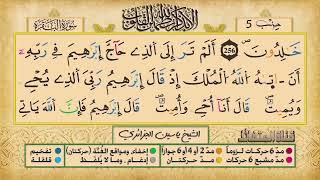 سورة البقرة
حزب 5
خَٰلِدُونَ 256 أَلَمْ تَرَ إِلَى ٱلَّذِے حَآجَّ إِبْرَٰهِيمَ فِے رَبِّهِۦٓ
أَنْ ءَاتَىٰهُ ٱللَّهُ ٱلْمُلْكَ إِذْ قَالَ إِبْرَٰهِيمُ رَبِّيَ ٱلَّذِے يُحْےِۦ
وَيُمِيتُ قَالَ أَنَآ أُحْےِۦ وَأُمِيتُ قَالَ إِبْرَٰهِيمُ فَإِنَّ ٱللَّهَ يَاتِے
الشيخ ياسين الجزائري
مدّ 6 حركات لزوماً مدّ 2 أو 4 أو 6 جوازاً إخفاء ومواقع الغُنَّة (حركتان) تفخيم
مدّ مشبع 6 حركات مدّ حركتان إدغام ، وما لا يُلفظ قلقلة